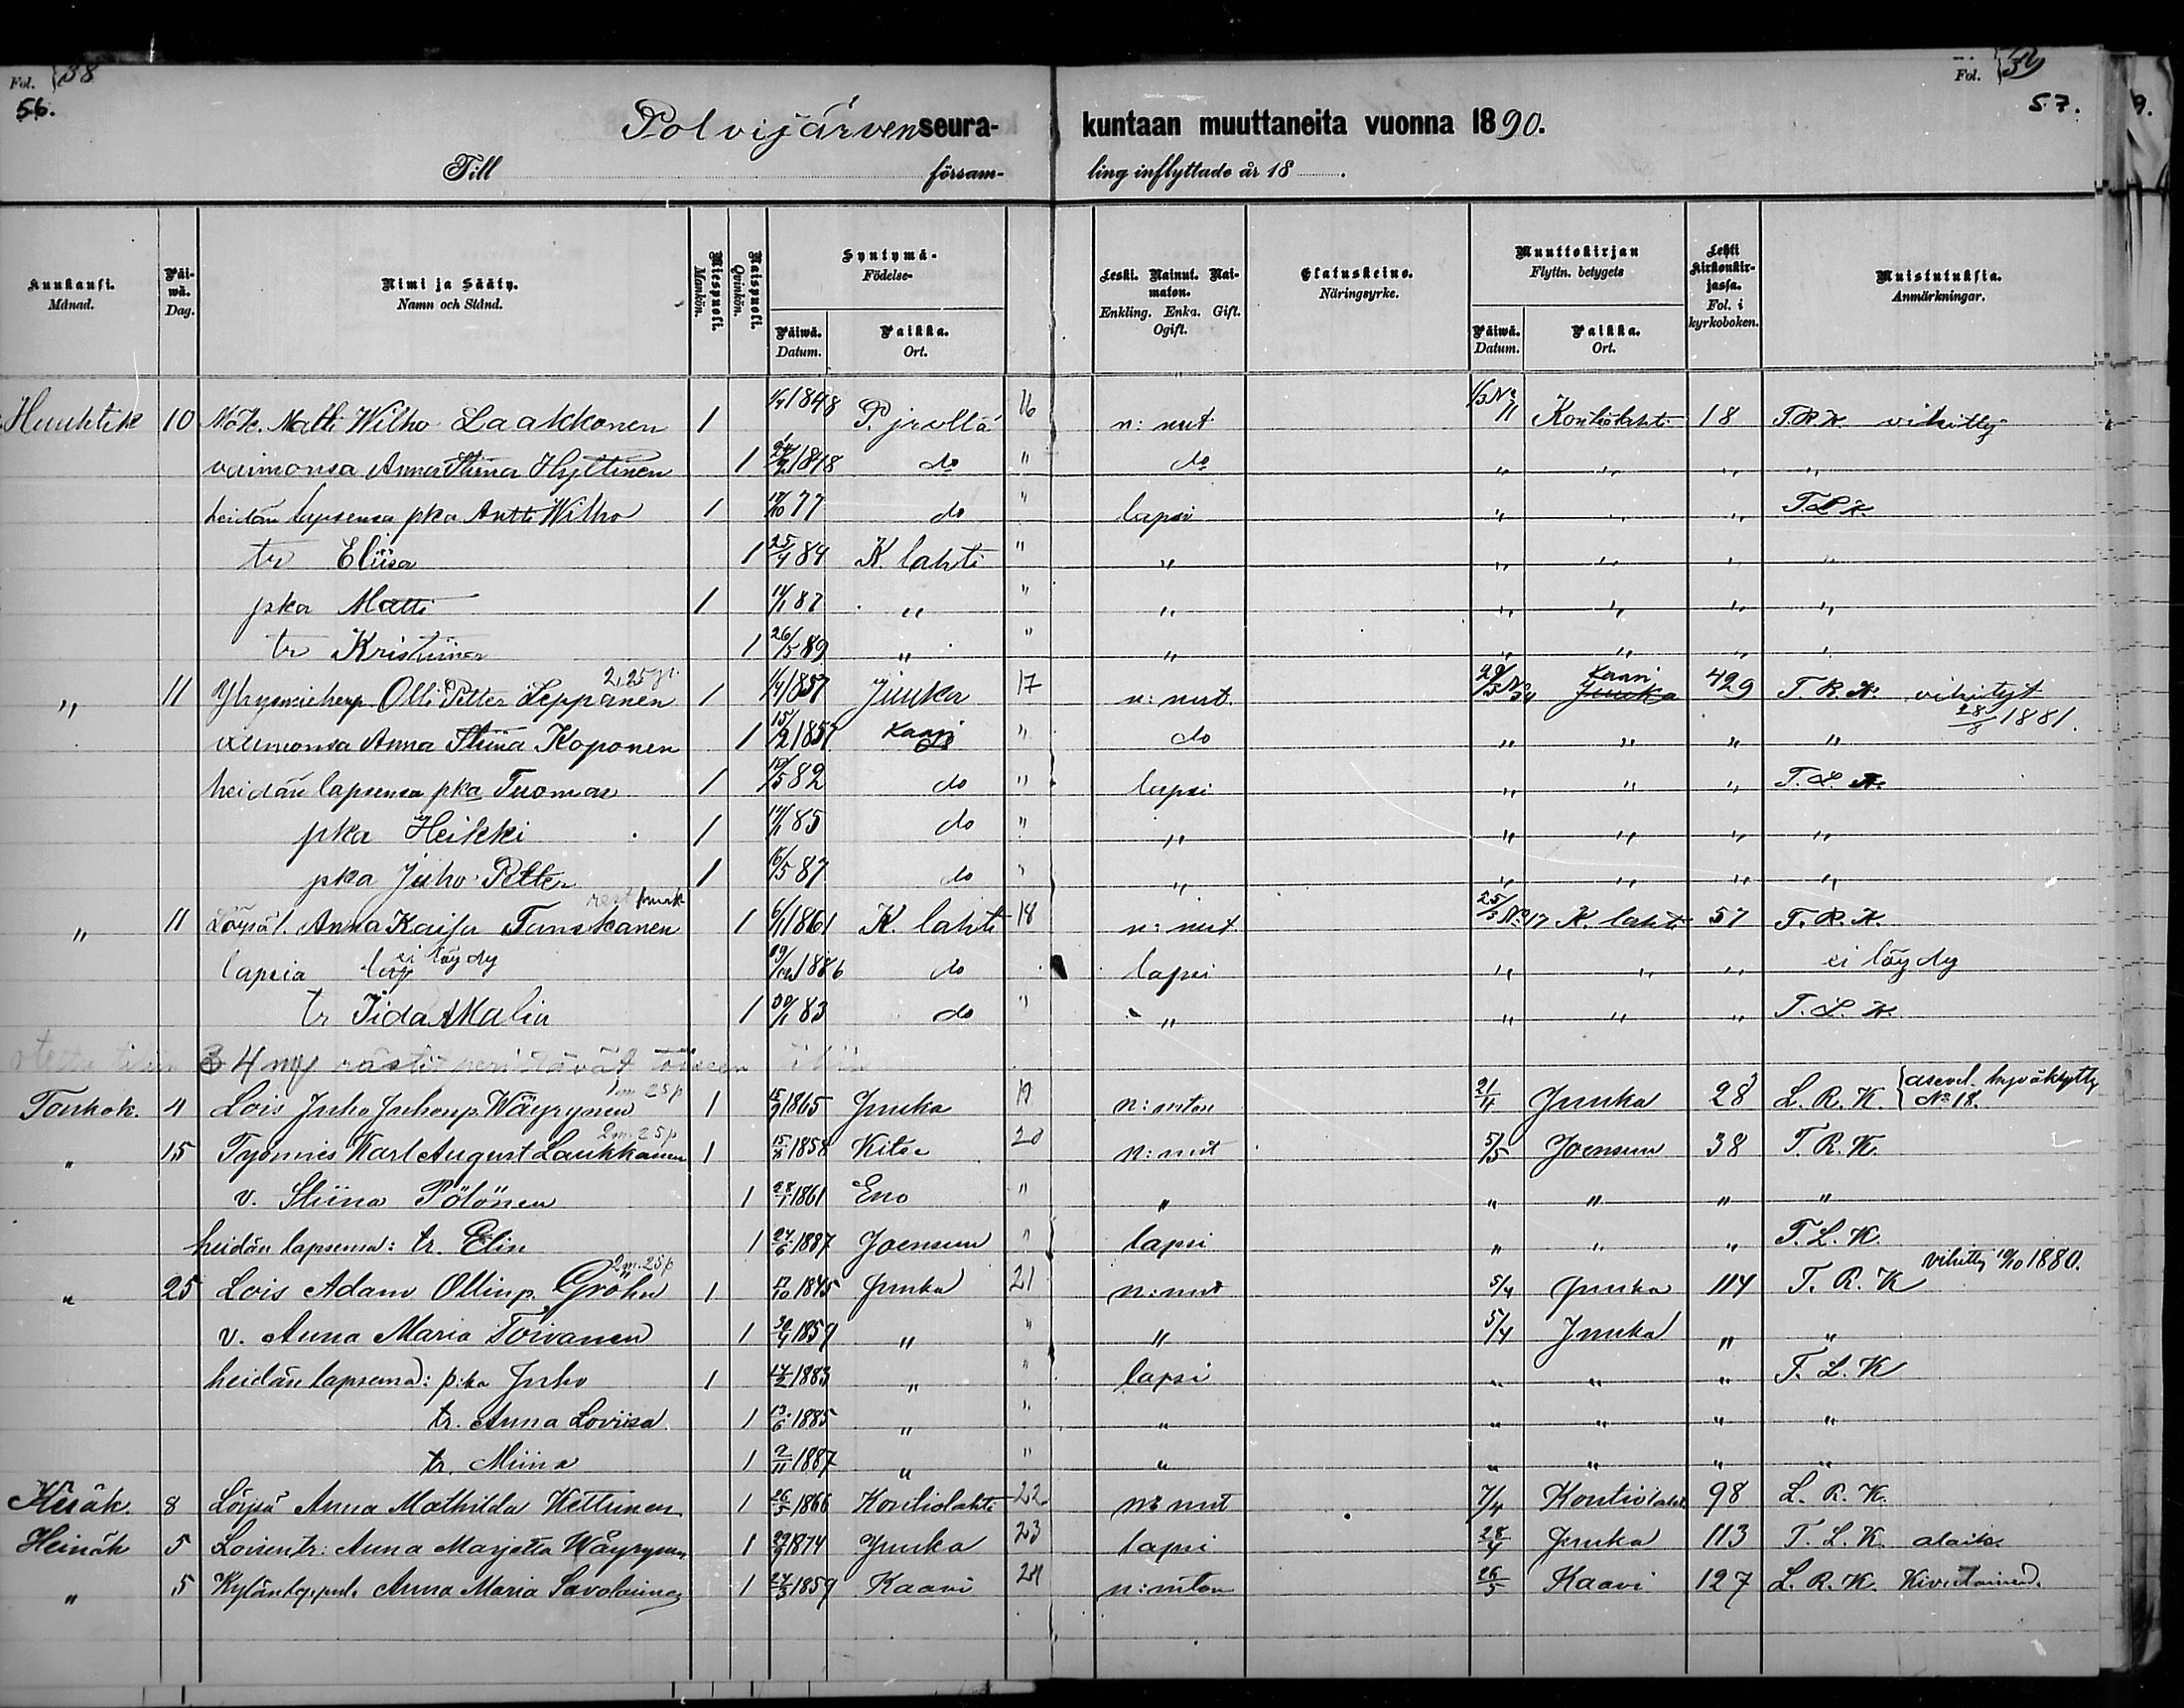 Fol. 38
56.
Fol.
57.
9.
Polvijärven seura-kuntaan muuttaneita vuonna 1890.
Till församling inflyttade år 18 .
Kuukausi. Månad.
Päiwä. Dag.
Nimi ja Sääty. Namn och Stånd.
Miespuoli. Mankön.
Naispuoli. Qvinkön.
Syntymä- Födelse-
Päiwä. Datum.
Paikka. Ort.
Leski. Nainut. Naimaton. Enkling. Enka. Gift. Ogift.
Elatuskeino. Näringsyrke.
Muuttokirjan Flyttn. betygets
Päiwä. Datum.
Paikka. Ort.
Lehti Kirkonkirjassa. Fol. i kyrkoboken.
Muistutuksia. Anmärkningar.
Huuhtik 10 Mök. Matti Wilho Laakkonen 1 1848 P. jrvellä 16 n: nut 1/3 No 11 Kontiolahti 18 T.R.K. vihitty
vaimonsa Anna Stiina Hyttinen 1 1848 do " do " " " "
heidän lapsensa pka Antti Wilho 1 77 do " lapsi " " " T.L.K.
tr Eliisa 1 25/4 84 K. lahti " " " " " "
pka Matti 1 87 " " " " " " "
tr Kristiina 1 26/5 89 " " " " " " "
2,25 p.
" 11 Olli Petter Leppänen 1 1/4 1857 Juuka 17 n: nut. Juuka Kaavi 429 T.R.K. vihityt 28/8 1881.
vaimonsa Anna Stiina Koponen 1 15/2 1857 Kaavi " do " " " "
heidän lapsensa pka Tuomas 1 82 do " lapsi " " " T.L.K.
pka Heikki 1 85 do " " " " " "
pka Juho Petter 1 16/5 87 do " " " " " "
" 11 Löysäl. Anna Kaisa Tanskanen 1 6/1 1861 K. lahti 18 n: nut 25/3 No 17 K. lahti 57 T.R.K.
lapsia ei löydy 1886 do lapsi " " " ei löydy
tr Iida Malin 1 83 do " " " " " T.L.K.
1m 25p
Toukok. 4 Lois Juho Juhonp. Wäyrynen 1 1865 Juuka 19 n: nton 21/4 Juuka 28 L.R.K. No 18.
2m 25p
" 15 Työmies Karl August Laukkanen 1 1858 Kitee 20 n: nut 5/5 Joensuu 38 T.R.K.
v. Stiina Pölönen 1 28/1 1861 Eno " " " " " "
heidän lapsensa: tr. Elin 1 27/6 1887 Joensuu " lapsi " " " T.L.K.
2m 25p
" 25 Lois Adam Ollinp. Gröhn 1 1845 Juuka 21 n: nut 5/4 Juuka 114 T.R.K vihitty 1880.
v. Anna Maria Toivanen 1 1859 " " " 5/4 Juuka " "
heidän lapsensa: p:ka Juho 1 17/2 1883 " " lapsi " " " T.L.K
tr. Anna Loviisa 1 13/6 1885 " " " " " " "
tr. Miina 1 9/11 1887 " " " " " " "
Kesäk. 8 Löysä Anna Mathilda Kettunen 1 26/3 1866 Kontiolahti 22 n: nut 7/4 Kontiolahti 98 L.R.K.
Heinäk 5 Loisen tr: Anna Marjetta Wäyrynen 1 1874 Juuka 23 lapsi 28/4 Juuka 113 T.L.K. alaik.
" 5 Anna Maria Savolainen 1 1859 Kaavi 24 n: nton 26/5 Kaavi 127 L.R.K.